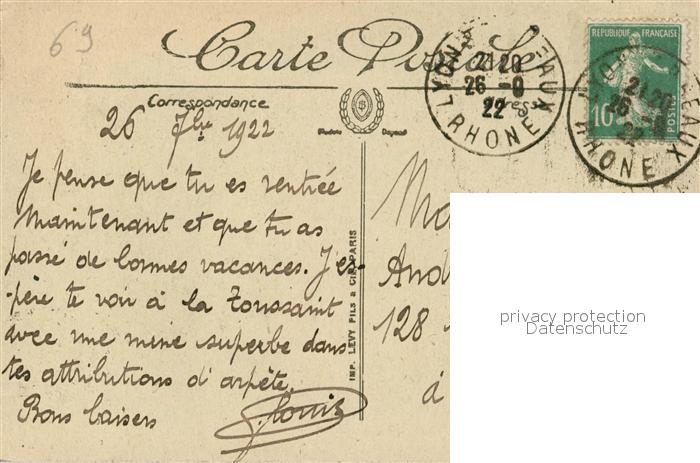 69
Carte Postale
Correspondance
Adresse
26 7bre 1922
Je pense que tu es rentrée
maintenant et que tu as
passé de bonnes vacances. J'es-
-père te voir à la Toussaint
avec une mine superbe dans
tes attributions d'arpète.
Bons baisers
Louis
IMP. LEVY FILS & CIE PARIS
LYON
21 20
26 - 9
22
RHONE
REPUBLIQUE FRANÇAISE
10
POSTES
21 20
26 - 9
22
RHONE
And
128
à
privacy protection
Datenschutz